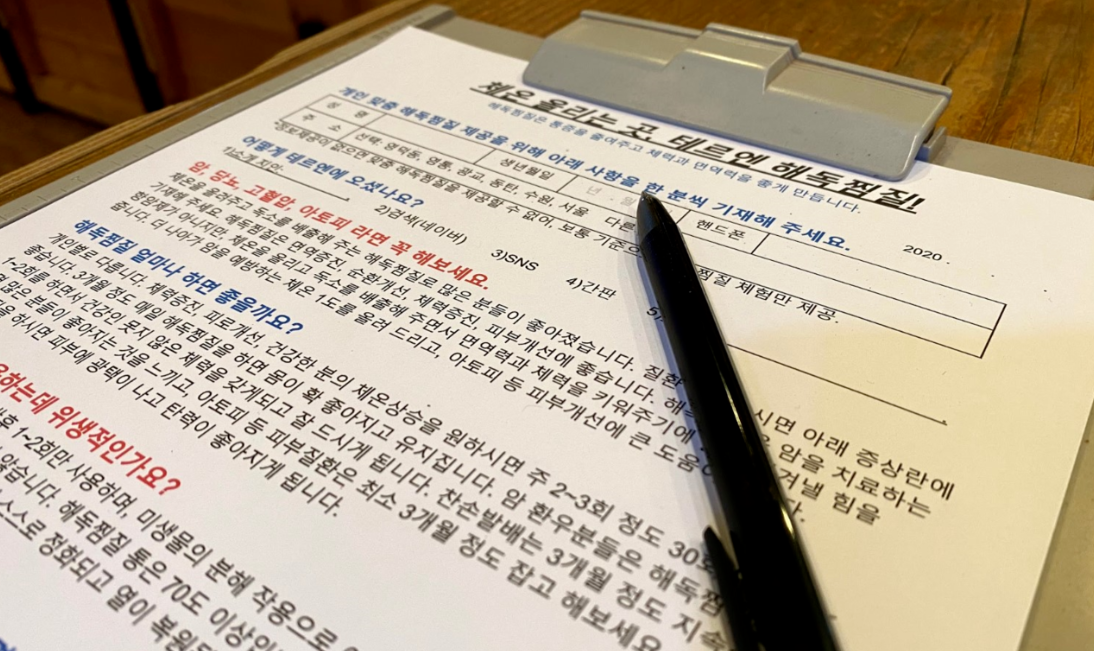 체온 올리는 곳 테르엔 해독찜질!
해독찜질은 통증을 줄여주고 체력과 면역력을 좋게 만듭니다.
개인 맞춤 해독찜질 제공을 위해 아래 사항을 한 분씩 기재해 주세요. 2020 .
성 명 생년월일 년 . 핸드폰
주 소 선택: 영덕동, 영통, 광교, 동탄, 수원, 서울 다른
정보제공이 없으면 맞춤 해독찜질을 제공할 수 없어, 보통 기준으 찜질 체험만 제공.
어떻게 테르엔에 오셨나요?
1)소개 지인 2)검색(네이버) 3)SNS 4)간판 5)
암, 당뇨, 고혈압, 아토피 라면 꼭 해보세요.
체온을 올려주고 독소를 배출해 주는 해독찜질로 많은 분들이 좋아졌습니다. 질환 시면 아래 증상란에
기재해 주세요. 해독찜질은 면역증진, 순환개선, 체력증진, 피부개선에 좋습니다. 해 암을 치료하는
병원은 아니지만, 체온을 올리고 독소를 배출해 주면서 면역력과 체력을 키워주기에 겨낼 힘을
줍니다. 더 나아가 암을 예방하는 체온 1도를 올려 드리고, 아토피 등 피부개선에 큰 도움이 다.
해독찜질 얼마나 하면 좋을까요?
개인별로 다릅니다. 체력증진, 피로개선, 건강한 부의 체온상승을 원하시면 주 2~3회 정도 30회
좋습니다. 3개월 정도 매일 해독찜질을 하면 몸이 확 좋아지고 유지됩니다. 암 환우분들은 해독찜
1~2회를 하면서 건강인 못지 않은 체력을 갖게되고 잘 드시게 됩니다. 찬손발배는 3개월 정도 지속
많은 분들이 좋아지는 것을 느끼고, 아토피 등 피부질환은 최소 3개월 정도 잡고 해보세요
하시면 피부에 광택이 나고 탄력이 좋아지게 됩니다.
하는데 위생적인가요?
1~2회만 사용하며, 미생물의 분해 작용으로
않습니다. 해독찜질 통은 70도 이상인
스스로 정화되고 열이 복원